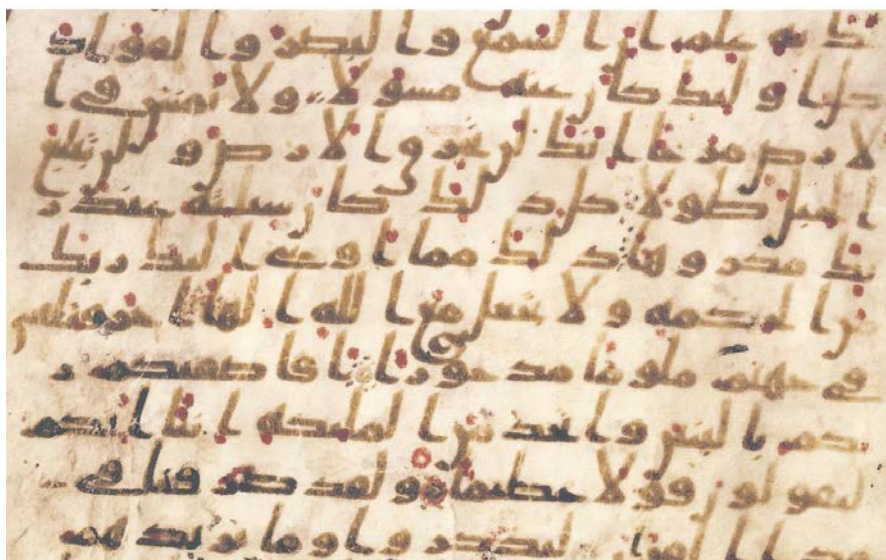 لك به علم ان السمع والبصر والفواد
كل اوليك كان عنه مسولا ولا تمش في ا
لارض مرحا انك لن تخرق الارض ولن تبلغ
الجبال طولا كل ذلك كان سيئه عند ر
بك مكروها ذلك مما اوحى اليك ربك
من الحكمه ولا تجعل مع الله الها اخر فتلقى
في جهنم ملوما مدحورا افاصفيكم ر
بكم بالبنين واتخذ من المليكه انثا انكم
لتقولون قولا عظيما ولقد صرفنا في
هذا القران ليذكروا وما يزيدهم